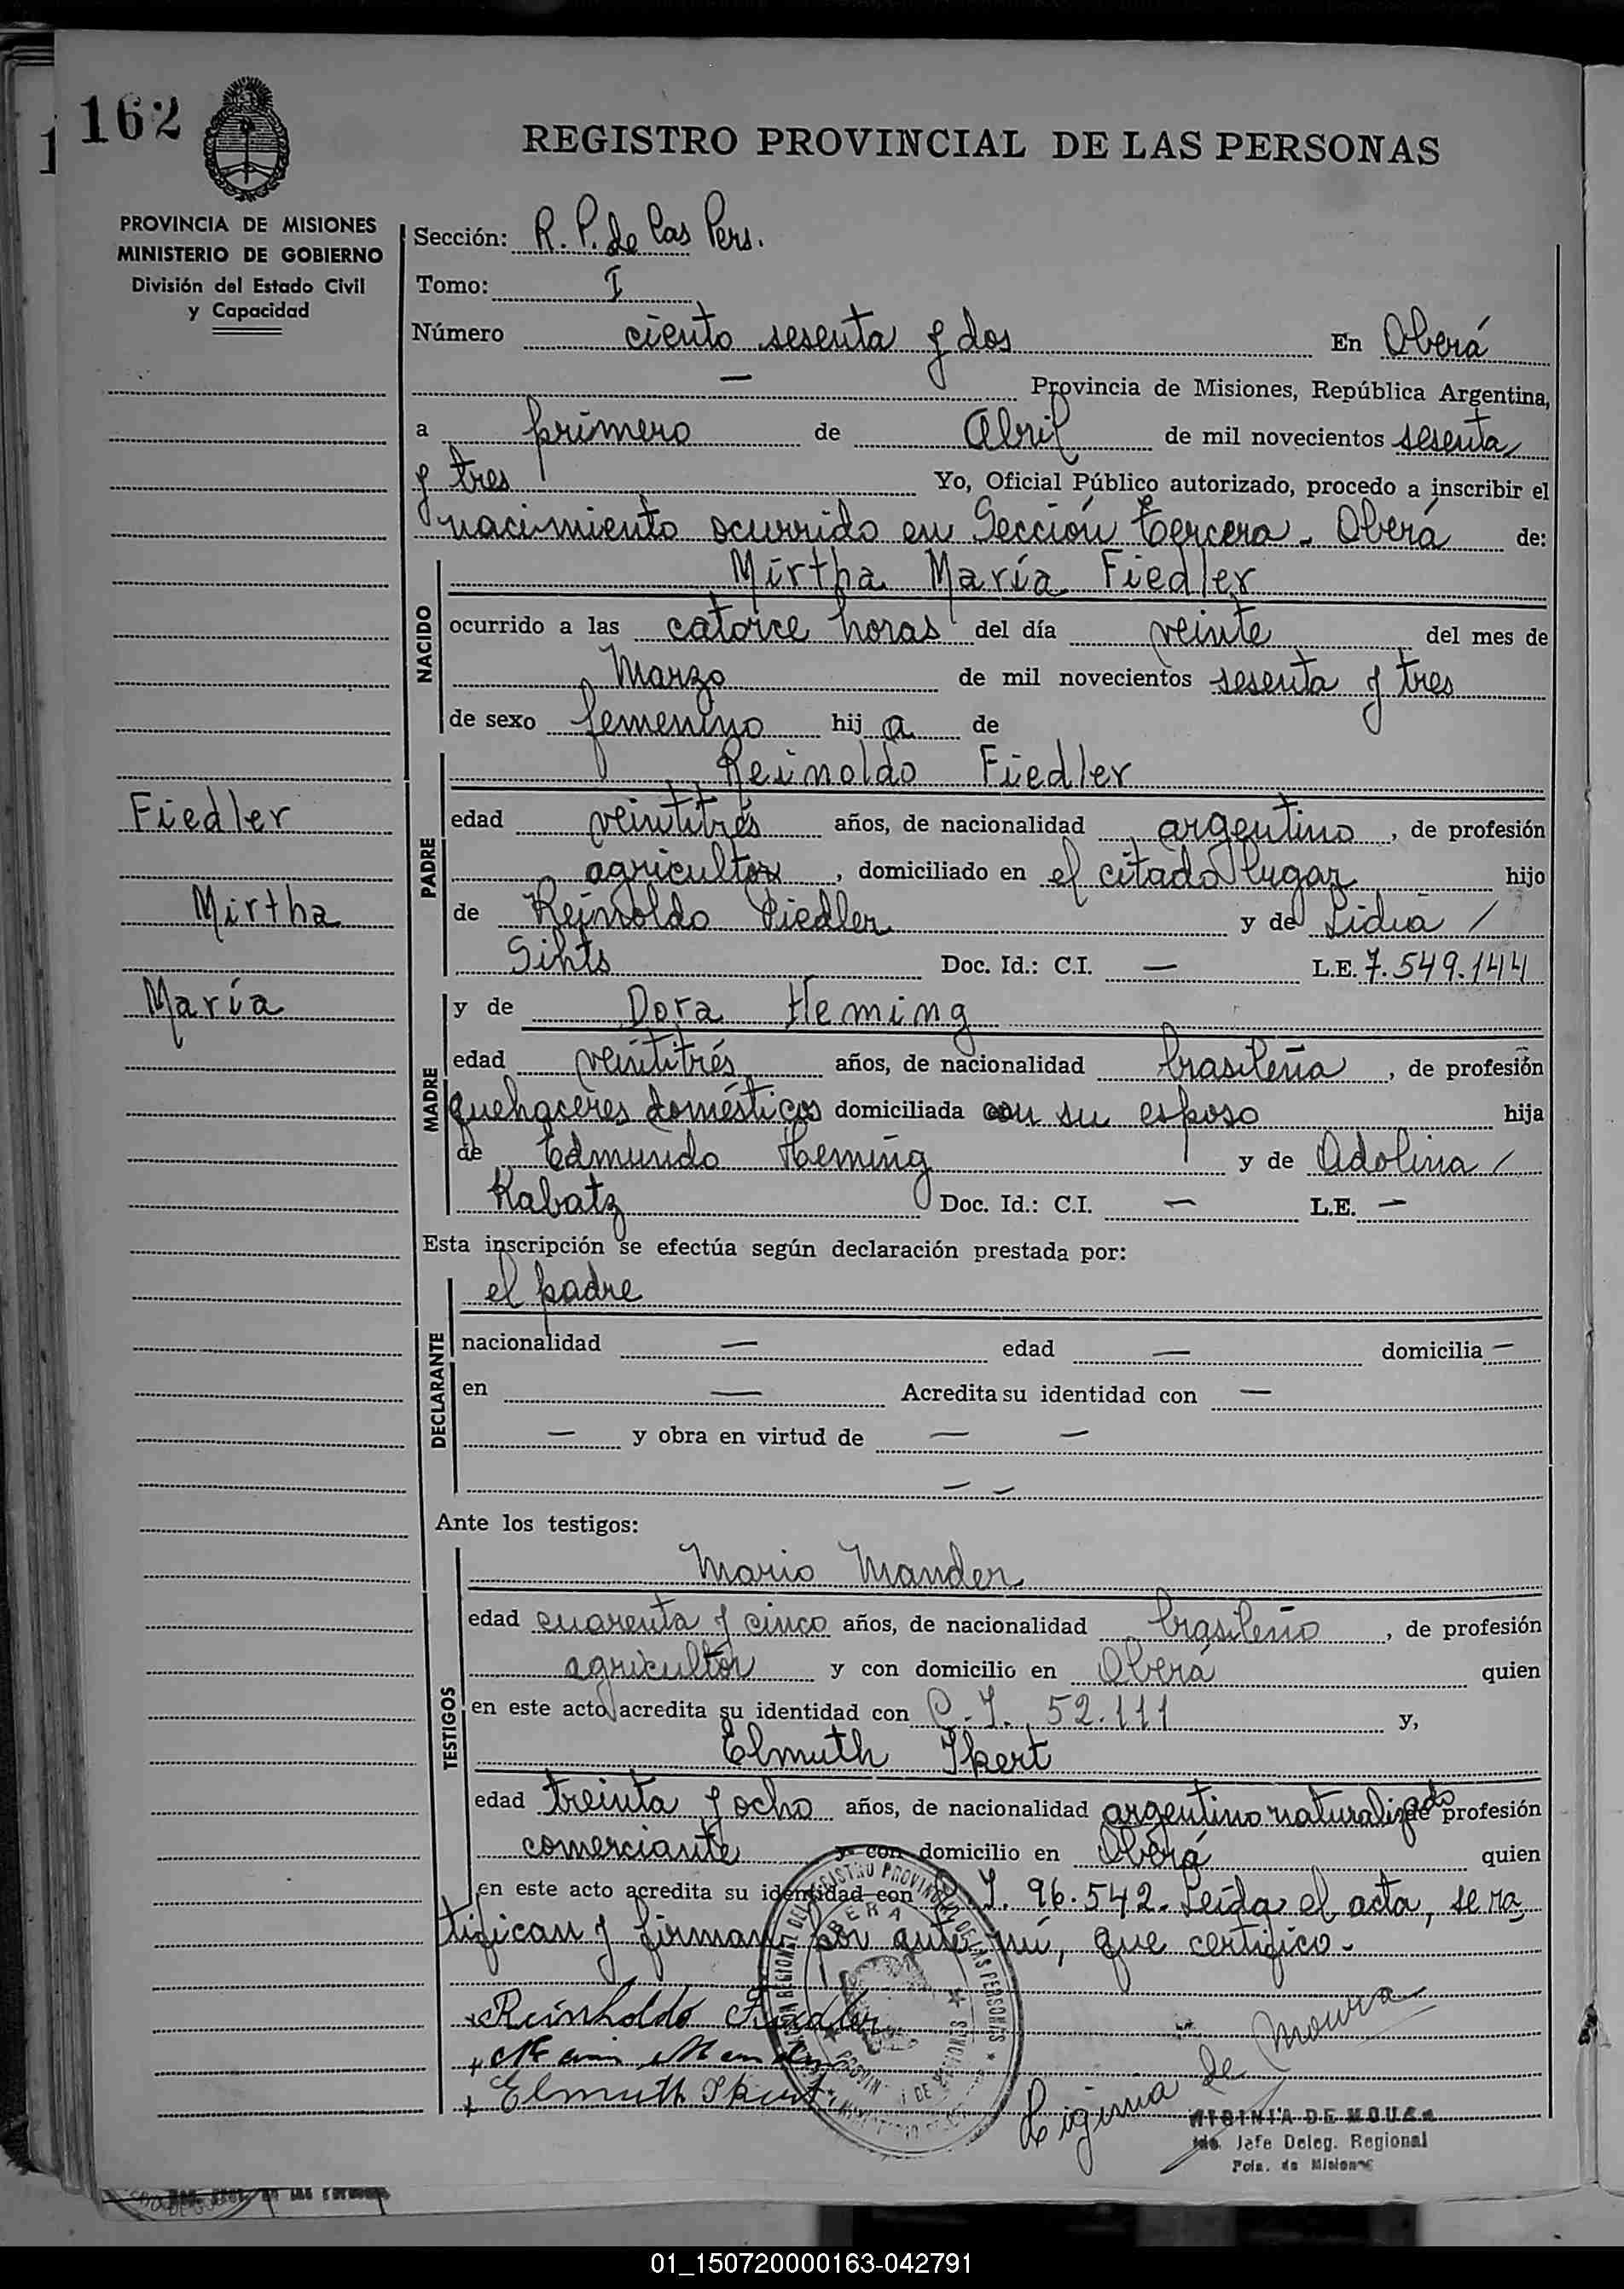 162
REGISTRO PROVINCIAL DE LAS PERSONAS
PROVINCIA DE MISIONES
MINISTERIO DE GOBIERNO
División del Estado Civil
y Capacidad
Sección: R. P. de las Pers.
Tomo: I
Número ciento sesenta y dos En Oberá
— Provincia de Misiones, República Argentina,
a primero de Abril de mil novecientos sesenta
y tres Yo, Oficial Público autorizado, procedo a inscribir el
nacimiento ocurrido en Sección tercera - Oberá de:
NACIDO
Mirtha María Fiedler
ocurrido a las catorce horas del día veinte del mes de
Marzo de mil novecientos sesenta y tres
de sexo femenino hij a de
PADRE
Reinoldo Fiedler
Fiedler
Mirtha
María
edad veintitrés años, de nacionalidad argentino, de profesión
agricultor, domiciliado en el citado lugar hijo
de Reinoldo Fiedler y de Lidia /
Sihts Doc. Id.: C.I. — L.E. 7.549.144
MADRE
y de Dora Heming
edad veintitrés años, de nacionalidad brasileña, de profesión
quehaceres domésticos domiciliada con su esposo hija
de Edmundo Heming y de Adolina /
Kabatz Doc. Id.: C.I. — L.E. —
Esta inscripción se efectúa según declaración prestada por:
DECLARANTE
el padre
nacionalidad — edad — domicilia —
en — Acredita su identidad con —
— y obra en virtud de — —
— —
Ante los testigos:
TESTIGOS
Mario Mander
edad cuarenta y cinco años, de nacionalidad brasileño, de profesión
agricultor y con domicilio en Oberá quien
en este acto acredita su identidad con C. I. 52.111 y,
Elmuth Ikert
edad treinta y ocho años, de nacionalidad argentino naturalizado de profesión
comerciante y con domicilio en Oberá quien
en este acto acredita su identidad con C. I. 96.542. Leída el acta, se ra
tifican y firman por ante mí, que certifico.-
Reinholdo Fiedler
Elmuth Ikert
Liginia de Moura
DE MOURA
Jefe Deleg. Regional
Pcia. de Misiones
01_150720000163-042791